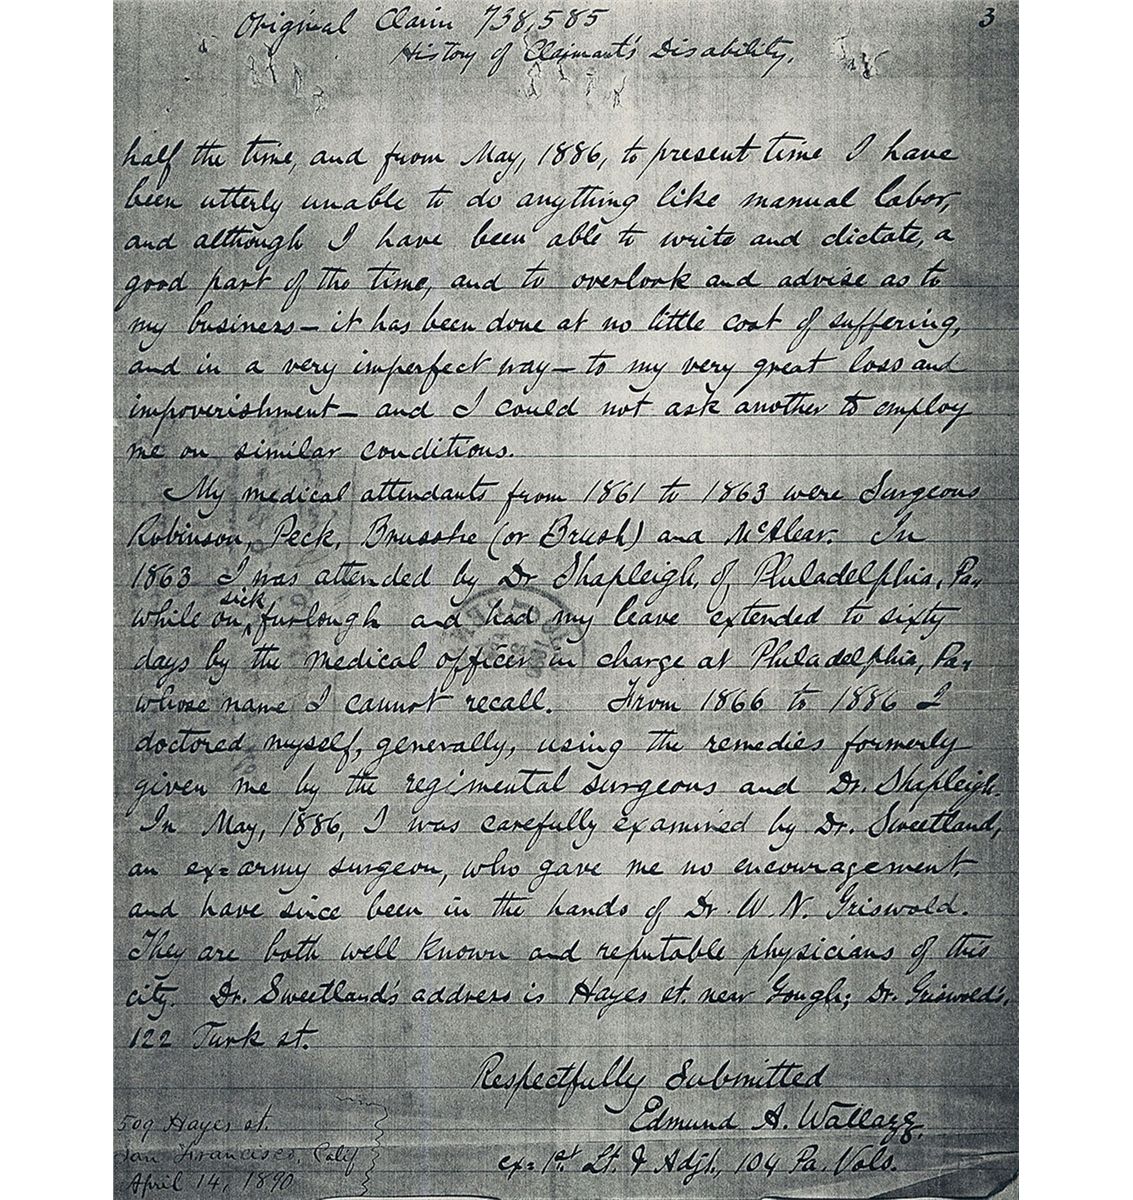 Original Claim 738,585
3
History of Claimant's Disability.
half the time, and from May, 1886, to present time I have
been utterly unable to do anything like manual labor,
and although I have been able to write and dictate, a
good part of the time, and to overlook and advise as to
my business — it has been done at no little cost of suffering,
and in a very imperfect way — to my very great loss and
impoverishment — and I could not ask another to employ
me on similar conditions.
My medical attendants from 1861 to 1863 were Surgeons
Robinson, Peck, Brusstre (or Brush) and McAlear. In
1863 I was attended by Dr Shapleigh, of Philadelphia, Pa.
sick
while on furlough and had my leave extended to sixty
days by the medical officer in charge at Philadelphia, Pa.
whose name I cannot recall. From 1866 to 1886 I
doctored myself, generally, using the remedies formerly
given me by the regimental surgeons and Dr. Shapleigh.
In May, 1886, I was carefully examined by Dr. Sweetland,
an ex=army surgeon, who gave me no encouragement,
and have since been in the hands of Dr. W. N. Griswold.
They are both well known and reputable physicians of this
city. Dr. Sweetland's address is Hayes st. near Gough; Dr. Griswold's,
122 Turk st.
Respectfully Submitted
Edmund A. Wallazz,
ex=1st Lt. & Adjt., 104 Pa. Vols.
509 Hayes st.
San Francisco, Calif
April 14, 1890